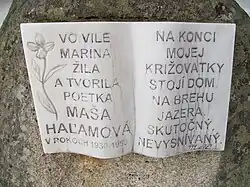 VO VILE
MARINA
ŽILA
A TVORILA
POETKA
MAŠA
HAĽAMOVÁ
V ROKOCH
NA KONCI
MOJEJ
KRIŽOVATKY
STOJÍ DOM
NA BREHU
JAZERA
SKUTOČNÝ,
NEVYSNÍVANÝ.